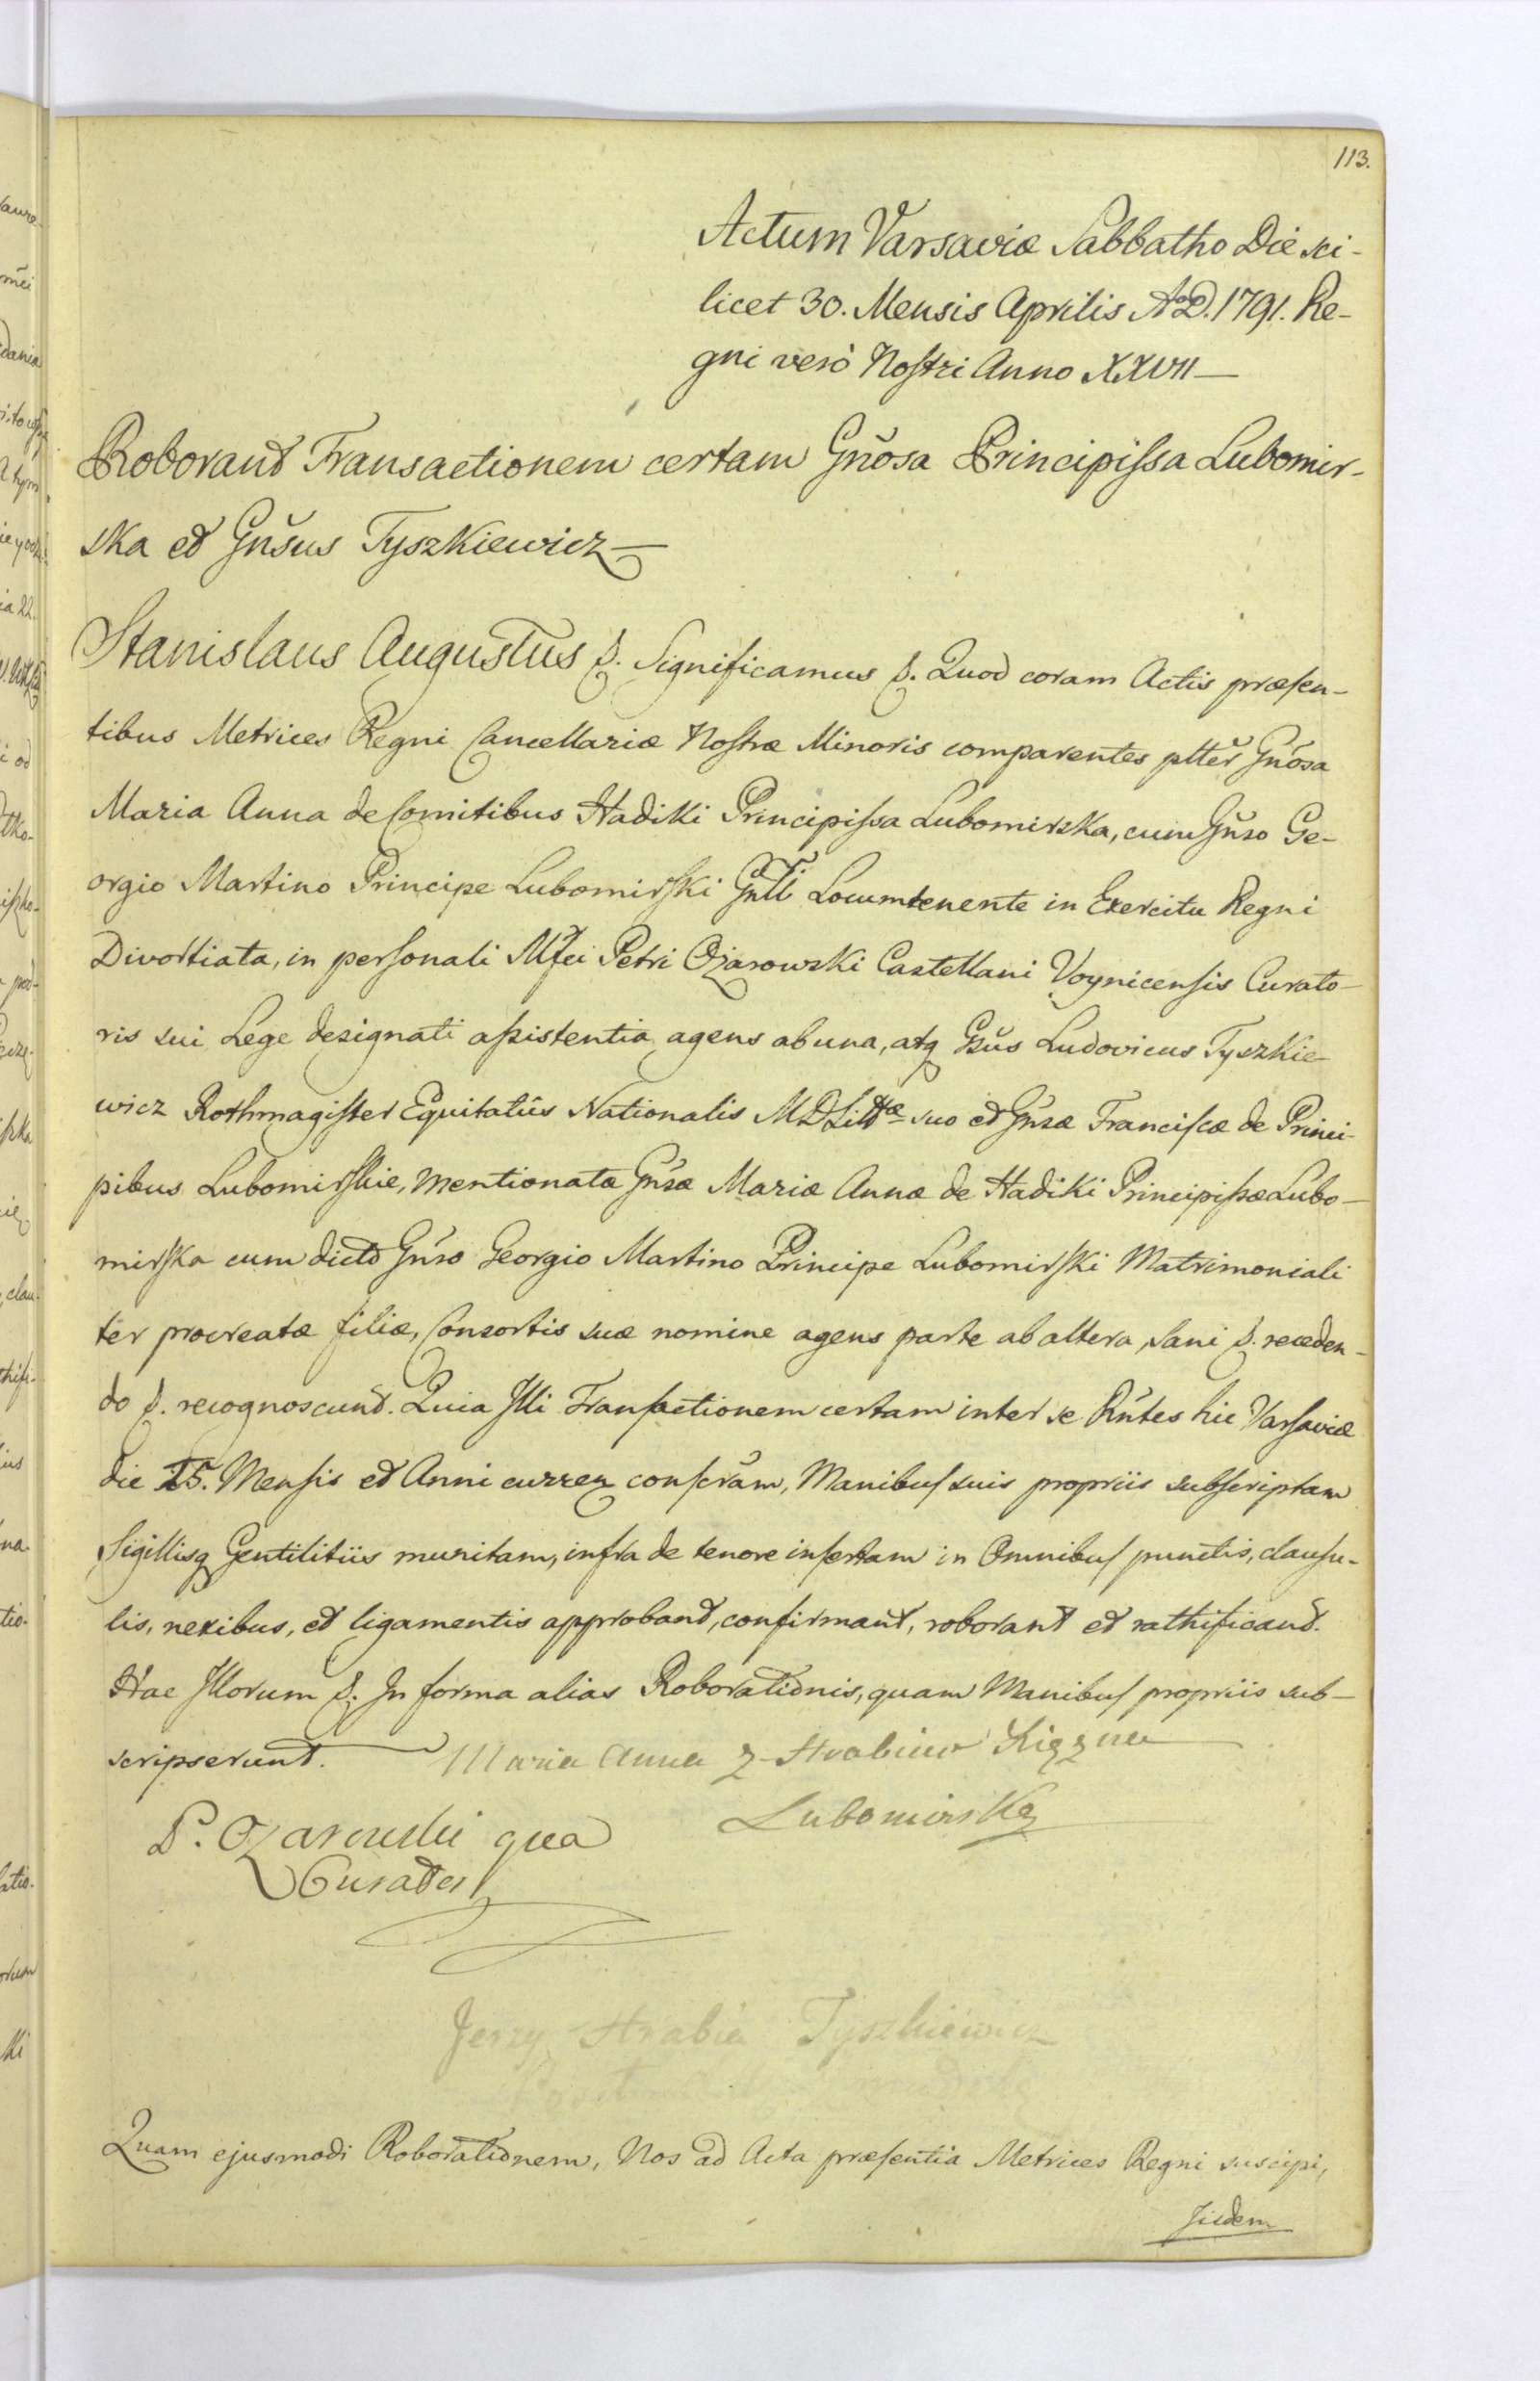 113.
Actum Varsaviæ Sabbatho Die sci-
licet 30. Mensis Aprilis AoD. 1791. Re-
gni verò Nostri Anno XXVII —
Roborant Transactionem certam Gnosa Principissa Lubomir-
ska et Gnsus Tyszkiewicz —
Stanislaus Augustus &. Significamus &. Quod coram Actis præsen-
tibus Metrices Regni Cancellariæ Nostræ Minoris comparentes pltter Gnosa
Maria Anna de Comitibus Hadiki Principissa Lubomirska, cum Gnso Ge-
orgio Martino Principe Lubomirski Gnlli Locumtenente in Exercitu Regni
Divortiata, in personali Mfci Petri Ożarowski Castellani Voynicensis Curato-
ris sui Lege designati assistentia agens ab una, atq Gsus Ludovicus Tyszkie-
wicz Rothmagister Equitatûs Nationalis MDLittæ suo et Gnsæ Franciscæ de Princi-
pibus Lubomirskie, mentionatæ Gnsæ Mariæ Annæ de Hadiki Principissæ Lubo-
mirska cum dicto Gnso Georgio Martino Principe Lubomirski Matrimoniali
ter procreatæ filiæ, Consortis suæ nomine agens parte ab altera, Sani &. receden-
do &. recognoscunt. Quia Illi Transactionem certam inter se Rntes hic Varsaviæ
die 15. Mensis et Anni curren conscram, Manibus suis propriis subscriptam
Sigillisq Gentilitiis munitam, infra de tenore insertam in Omnibus punctis, clausu-
lis, nexibus, et ligamentis approbant, confirmant, roborant et rathificant.
Hac Illorum &. In forma alias Roborationis, quam Manibus propriis sub-
scripserunt. Maria Anna z Hrabiow Xiężna
Lubomirska
P. Ożarowski qua
Curator
Jerzy Hrabia Tyszkiewicz
Quam ejusmodi Roborationem, Nos ad Acta præsentia Metrices Regni suscipi,
Jisdem